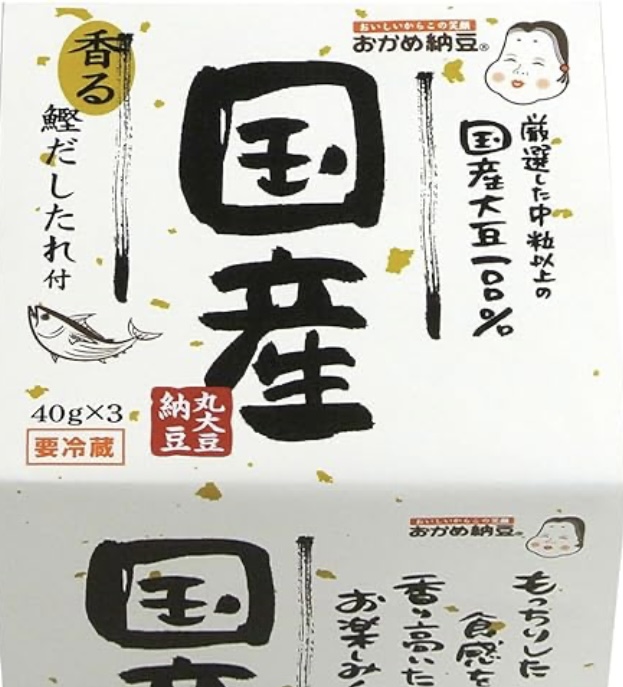 おいしいからこの笑顔
おかめ納豆®
厳選した中粒以上の
国産大豆一〇〇%
国産
丸大豆
納豆
香る
鰹だしたれ付
40g×3
要冷蔵
おいしいからこの笑顔
おかめ納豆®
もっちりした
食感を
香り高いた
お楽しみく
国産